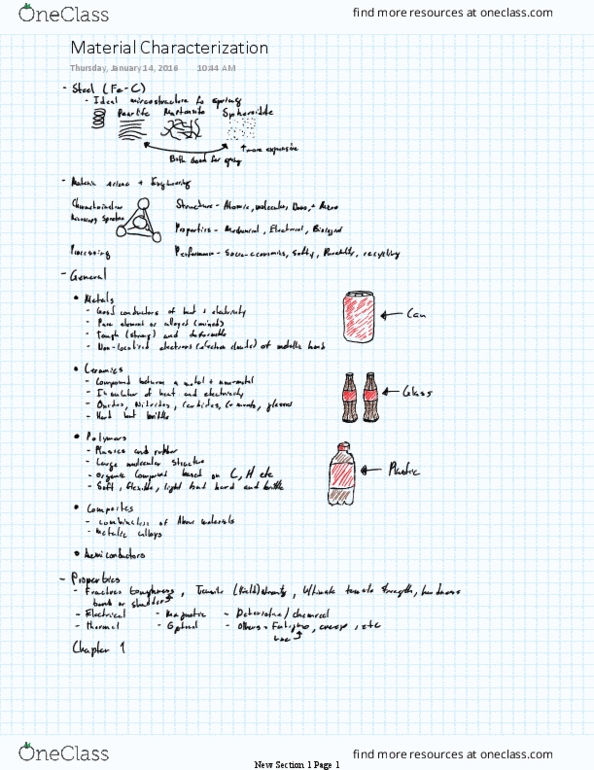 OneClass
find more resources at oneclass.com
Material Characterization
Thursday, January 14, 2016 10:44 AM
- Steel (Fe-C)
- Ideal microstructure for spring
Pearlite Martensite Spheroidite
Both used for spring
↑ more expensive
- Material science + Engineering
Characterization
Structure - Atomic, molecular, + Macro
Properties - Mechanical, Electrical, Biological
Processing
Performance - Socio-economics, Safety, Durability, recycling
- General
• Metals
- Good conductors of heat & electricity
- Pure element or alloyed (mixed)
- Tough (strong) and deformable
- Non-localized electrons (electron clouds) of metallic bond
← Can
• Ceramics
- Compound between a metal + non-metal
- Insulator of heat and electricity
- Oxides, Nitrides, Carbides, Cements, glasses
- Hard but brittle
← Glass
• Polymers
- Plastics and rubber
- Large molecular structure
- Organic Compound based on C, H etc
- Soft, flexible, light but hard and brittle
← Plastic
• Composites
- combination of Above materials
- Metallic alloys
• Semiconductors
- Properties
- Fracture toughness, Tensile (Yield) strength, Ultimate tensile strength, hardness
bend or
- Electrical - Magnetic - Deteriorative / chemical
- thermal - Optical - Others = Fatigue, creep, etc
Chapter 1
OneClass
find more resources at oneclass.com
New Section 1 Page 1